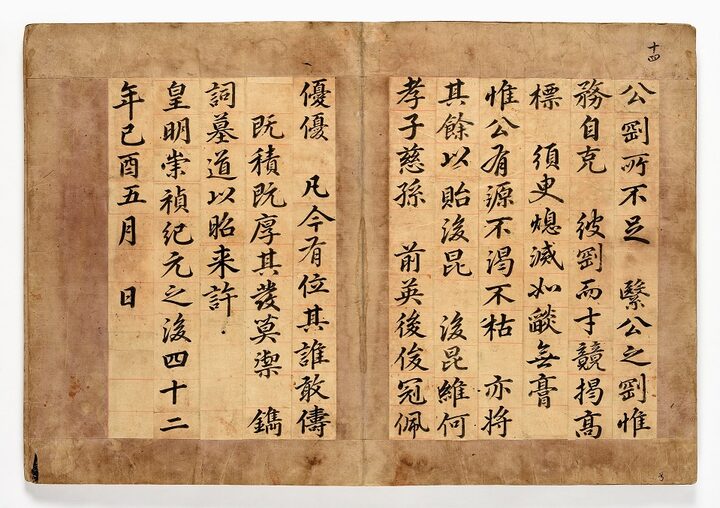 十四
公罰所不足 緊公之罰惟
務自克 彼罰而才競揭高
標 須臾熄滅如燄無膏
惟公有源不渴不枯 亦將
其餘以貽後昆 後昆維何
孝子慈孫 前英後俊冠佩
優優 凡今有位其誰敢儔
既積既厚其發莫禦 鐫
詞墓道以昭来許
皇明崇禎紀元之後四十二
年己酉五月 日